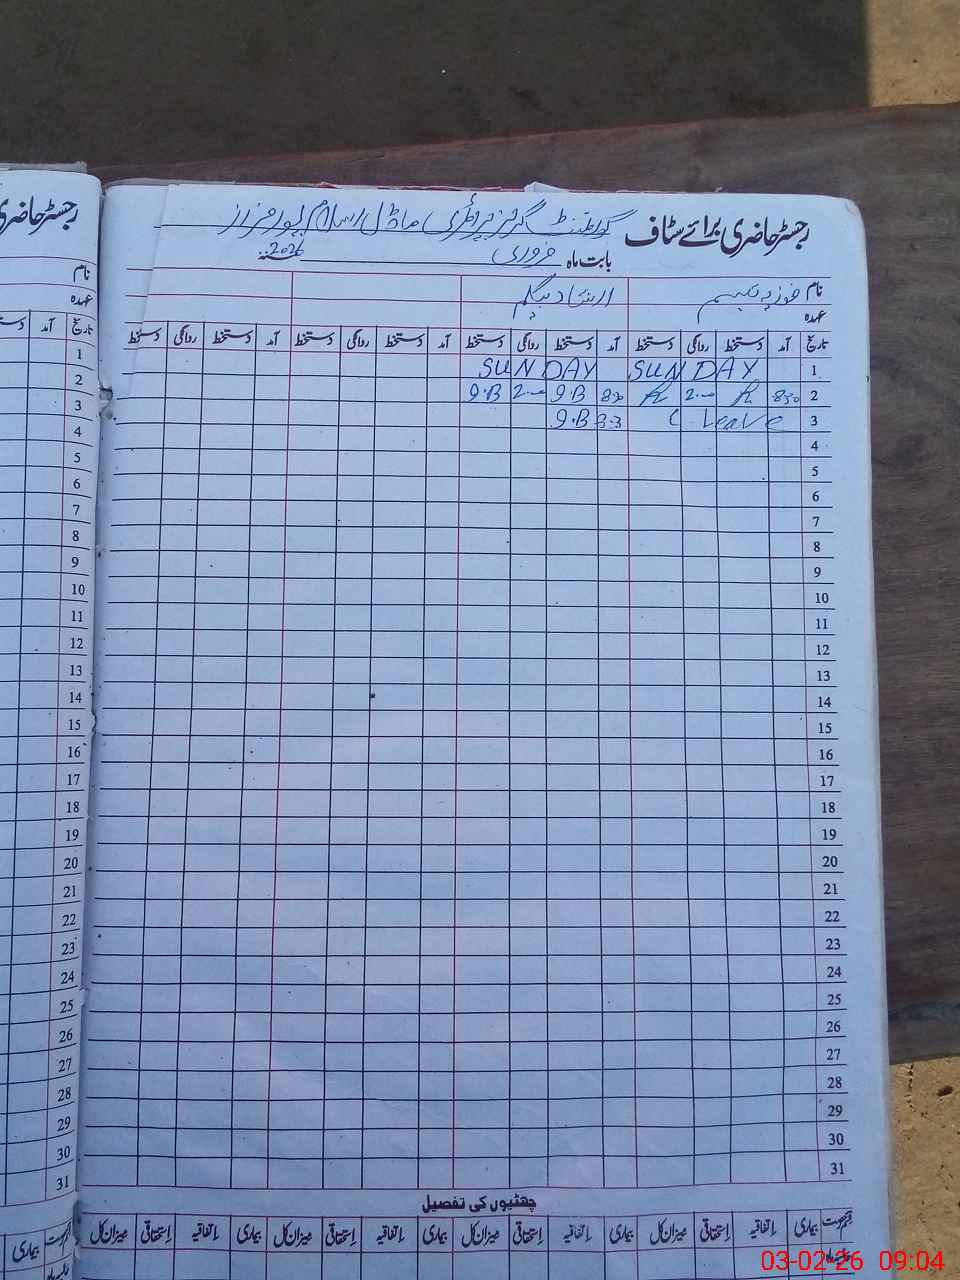 رجسٹر حاضری برائے سٹاف گورنمنٹ گرلز پرائمری ماڈل اسلام پور
بابت ماہ فروری 2026
نام فوزیہ تبسم ارشاد بیگم
عہدہ
تاریخ آمد دستخط روانگی دستخط آمد دستخط روانگی دستخط آمد دستخط روانگی دستخط آمد دستخط روانگی دستخط
1 SUNDAY SUNDAY
2 8:30 2:00 8:30 9.B 2:00 9.B
3 C Leave 8:3 9.B
4
5
6
7
8
9
10
11
12
13
14
15
16
17
18
19
20
21
22
23
24
25
26
27
28
29
30
31
چھٹیوں کی تفصیل
بیماری اتفاقیہ استحقاقی میزان کل بیماری اتفاقیہ استحقاقی میزان کل بیماری اتفاقیہ استحقاقی میزان کل بیماری اتفاقیہ استحقاقی میزان کل
رجسٹر حاضری
نام
عہدہ
تاریخ آمد
1
2
3
4
5
6
7
8
9
10
11
12
13
14
15
16
17
18
19
20
21
22
23
24
25
26
27
28
29
30
31
بیماری
03-02-26 09:04